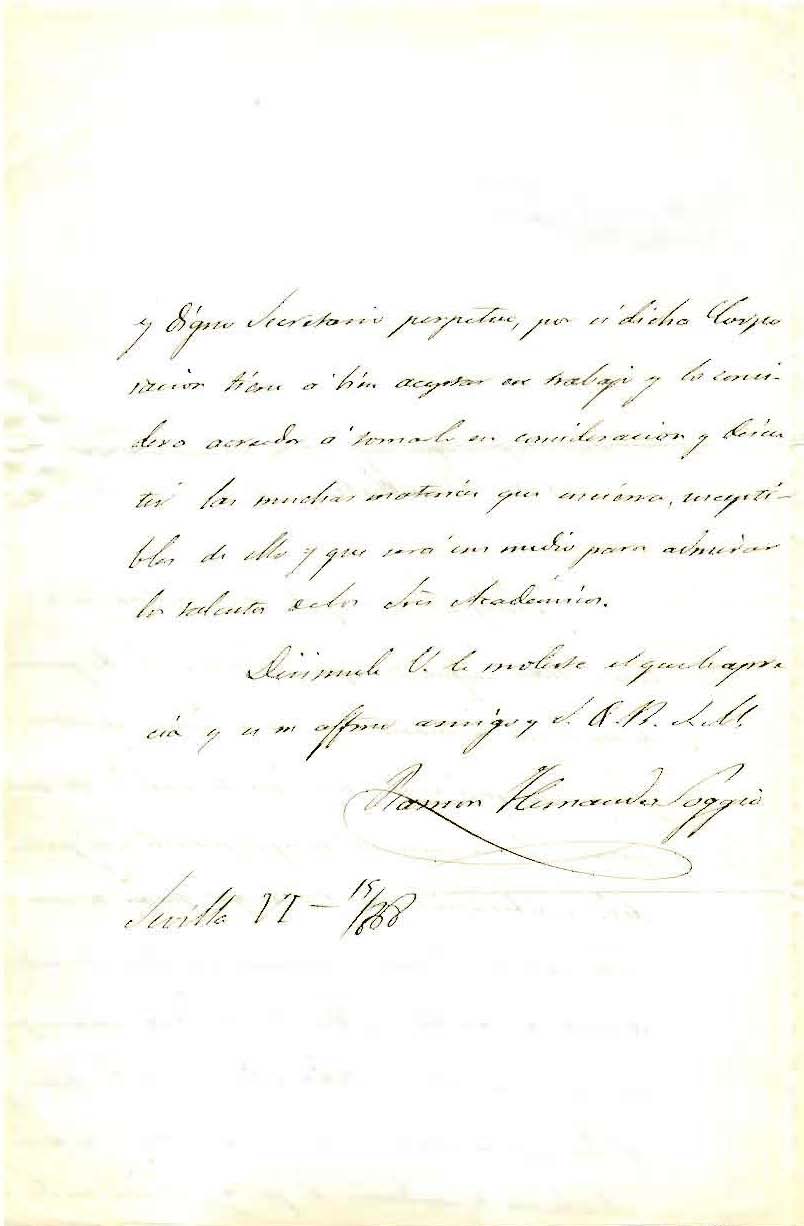 y digno Secretario perpetuo, por si dicha Corpo
racion tiene á bien aceptar ese trabajo y lo consi-
dera acreedor á tomarlo en consideracion y discu
tir las muchas materias que encierra, suscepti-
bles de ello y que será un medio para admirar
los talentos delos Sres Académicos.
Disimule V. le moleste el que le apre
cia y es su affmo amigo y S. Q. B. S. M.
Ramon Hernandez Poggio
Sevilla VI - 15/868